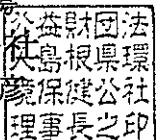 公益財団法
人島根県環
境保健公社
理事長之印
社
彦